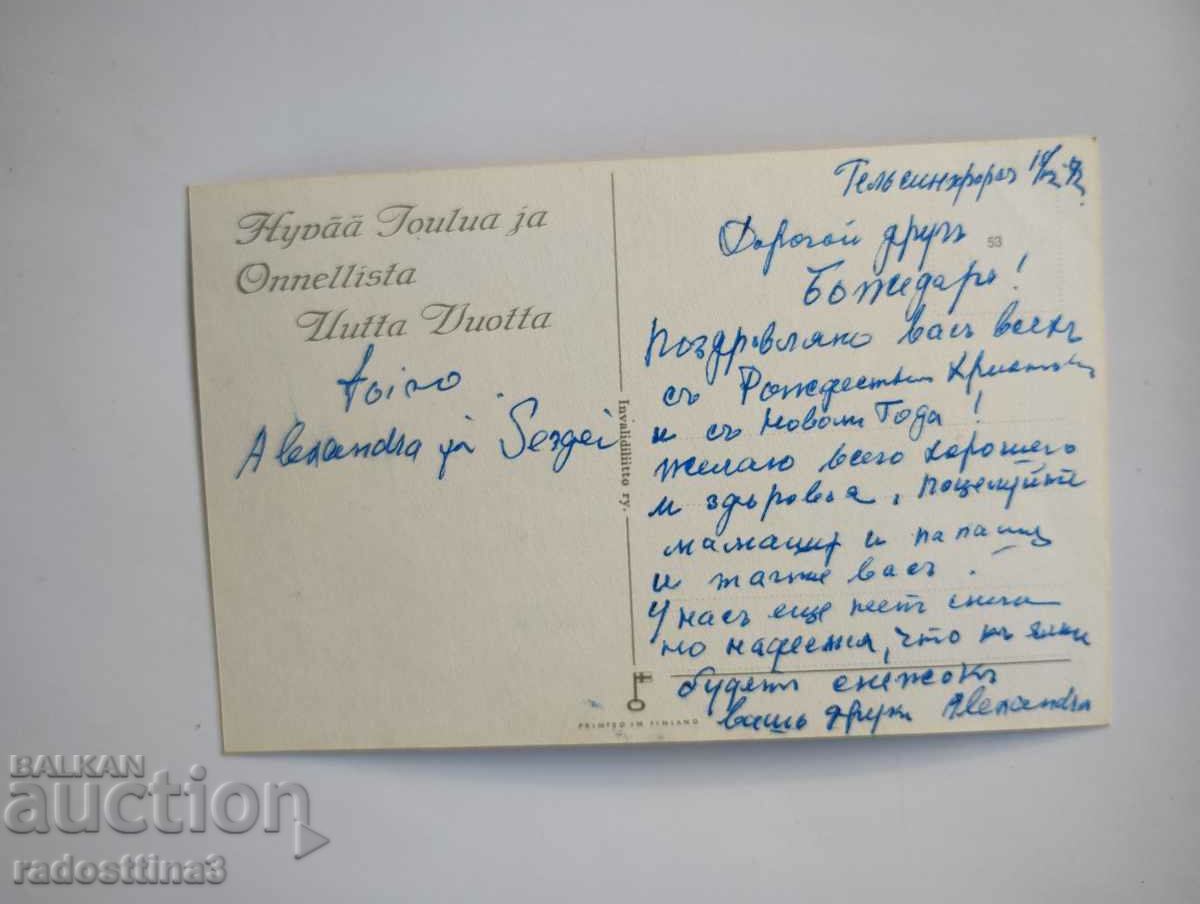 Hyvää Joulua ja
Onnellista
Uutta Vuotta
toivo
Alexandra ja Sergei
Invalidiliitto ry.
PRINTED IN FINLAND
53
Гельсингфорсъ
Дорогой другъ
Божидаръ!
Поздръвляю васъ всехъ
съ Рождествым Христовы
и съ Новым Года!
желаю всего хорошего
и здъровья, поцелуйте
мамашу и папашу
и также васъ.
У насъ еще нетъ снега
но надеемся, что къ ялки
будетъ снежокъ
вашь други Alexandra
BALKAN
auction
radosttina3